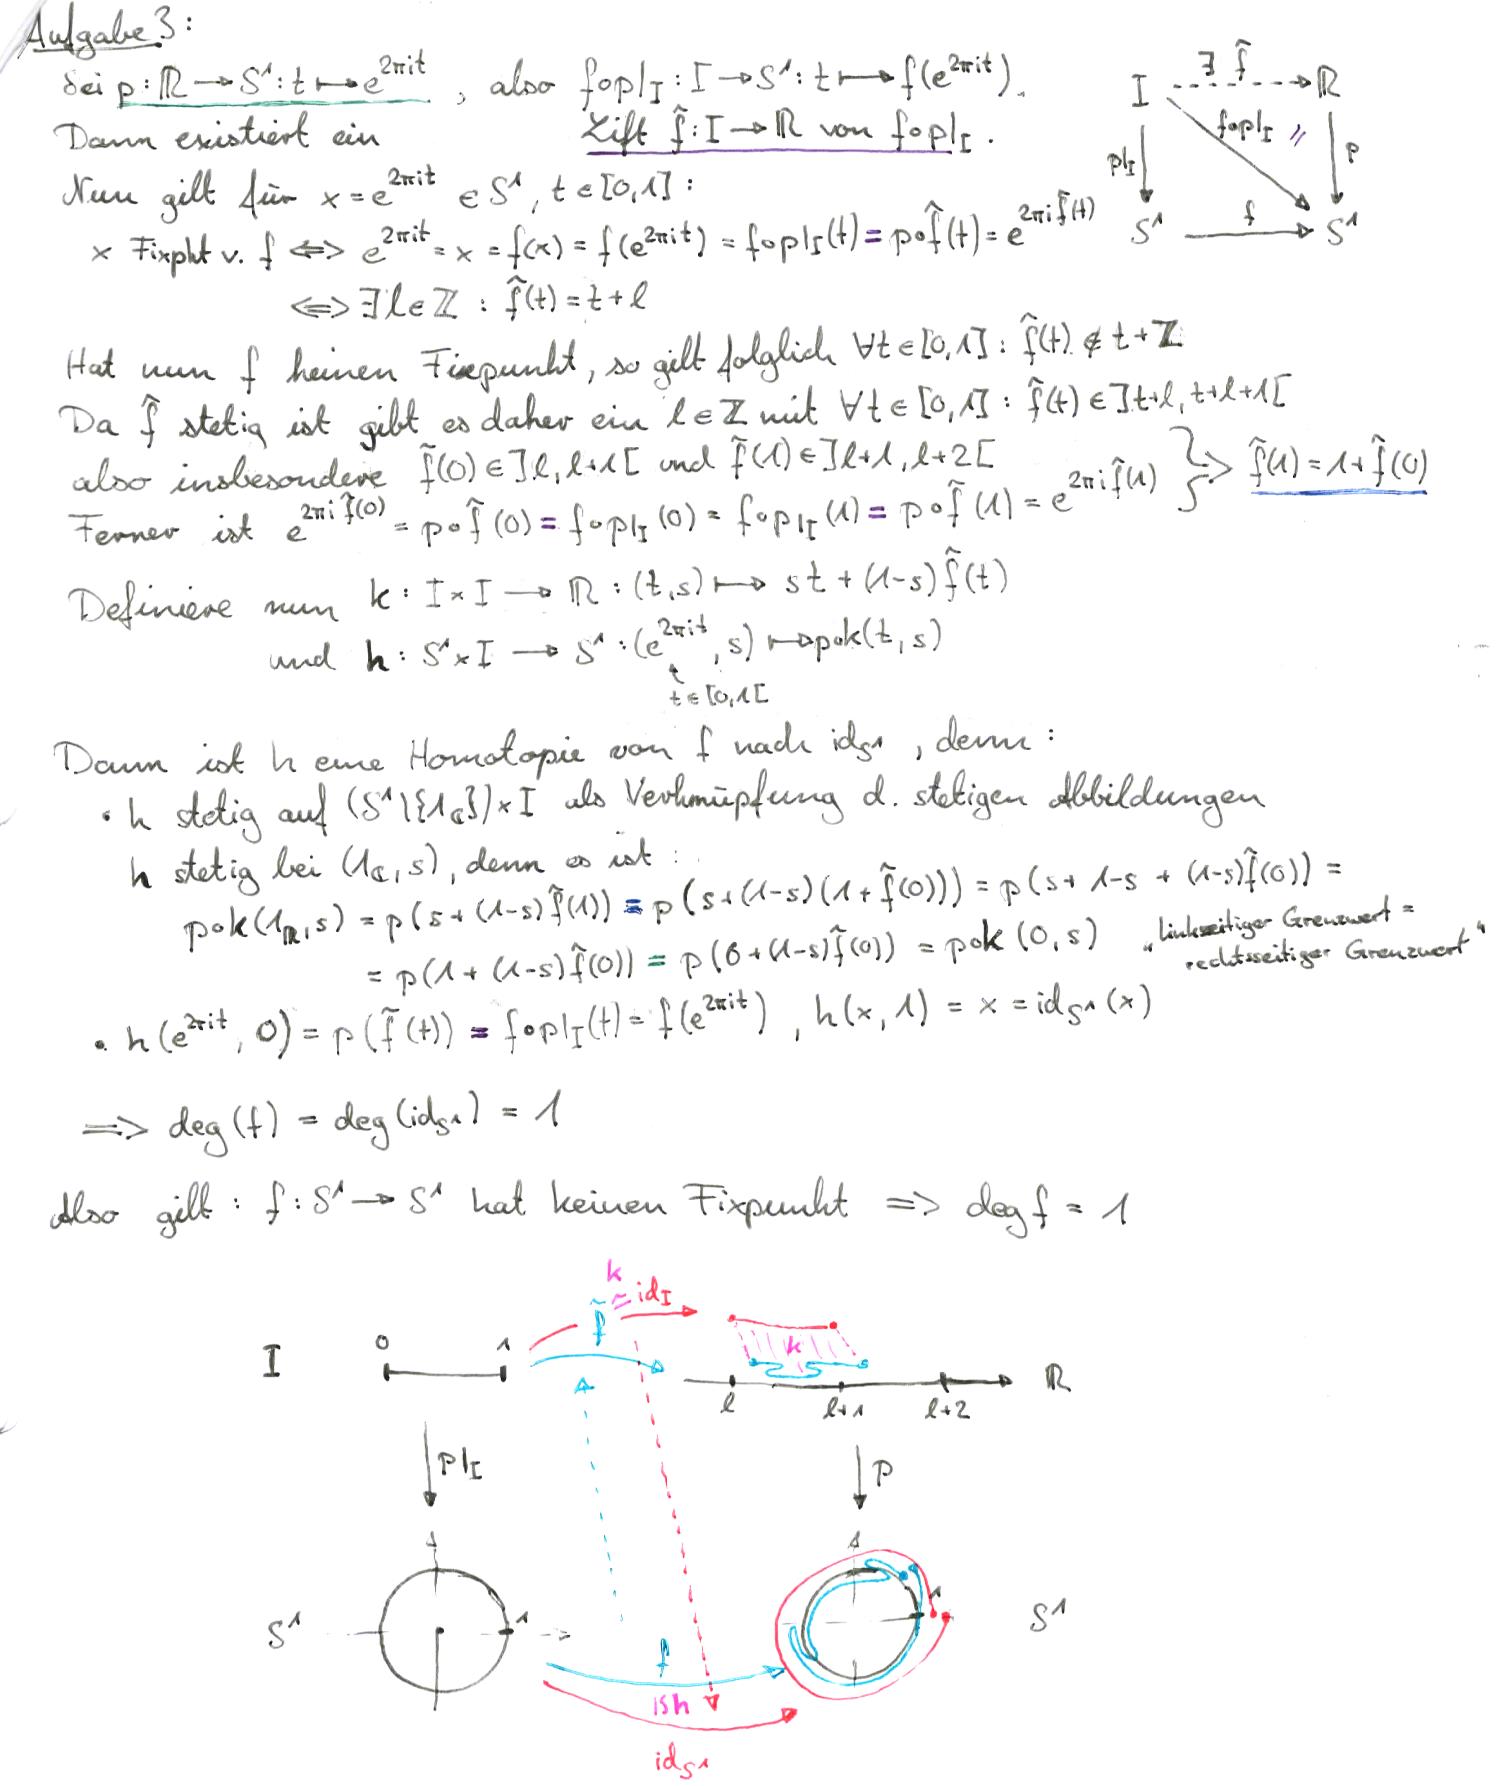 Aufgabe 3:
Sei p : ℝ → S¹ : t ↦ e^{2πit} , also f∘p|_I : I → S¹ : t ↦ f(e^{2πit}).
Dann existiert ein Lift f̃ : I → ℝ von f∘p|_I .
I ∃ f̃ ℝ
p|_I f∘p|_I // p
S¹ f S¹
Nun gilt für x = e^{2πit} ∈ S¹, t ∈ [0,1] :
x Fixpkt v. f ⟺ e^{2πit} = x = f(x) = f(e^{2πit}) = f∘p|_I(t) = p∘f̃(t) = e^{2πi f̃(t)}
⟺ ∃ l ∈ ℤ : f̃(t) = t + l
Hat nun f keinen Fixpunkt, so gilt folglich ∀t ∈ [0,1] : f̃(t) ∉ t + ℤ
Da f̃ stetig ist gibt es daher ein l ∈ ℤ mit ∀t ∈ [0,1] : f̃(t) ∈ ]t+l, t+l+1[
also insbesondere f̃(0) ∈ ]l, l+1[ und f̃(1) ∈ ]l+1, l+2[
Ferner ist e^{2πi f̃(0)} = p∘f̃(0) = f∘p|_I(0) = f∘p|_I(1) = p∘f̃(1) = e^{2πi f̃(1)} } ⟹ f̃(1) = 1 + f̃(0)
Definiere nun k : I × I → ℝ : (t,s) ↦ st + (1-s) f̃(t)
und h : S¹ × I → S¹ : (e^{2πit}, s) ↦ p∘k(t,s)
↑
t ∈ [0,1[
Dann ist h eine Homotopie von f nach id_{S¹} , denn :
• h stetig auf (S¹∖{1_ℂ}) × I als Verknüpfung d. stetigen Abbildungen
h stetig bei (1_ℂ, s), denn es ist :
p∘k(1_ℝ, s) = p(s + (1-s) f̃(1)) = p(s + (1-s)(1 + f̃(0))) = p(s + 1-s + (1-s) f̃(0)) =
= p(1 + (1-s) f̃(0)) = p(0 + (1-s) f̃(0)) = p∘k(0, s) „linksseitiger Grenzwert =
rechtsseitiger Grenzwert“
• h(e^{2πit}, 0) = p(f̃(t)) = f∘p|_I(t) = f(e^{2πit}) , h(x, 1) = x = id_{S¹}(x)
⟹ deg(f) = deg(id_{S¹}) = 1
Also gilt : f : S¹ → S¹ hat keinen Fixpunkt ⟹ deg f = 1
k
f̃ ≃ id_I
I 0 1 k ℝ
l l+1 l+2
p|_I p
S¹ 1 1 S¹
f
≃ h
id_{S¹}